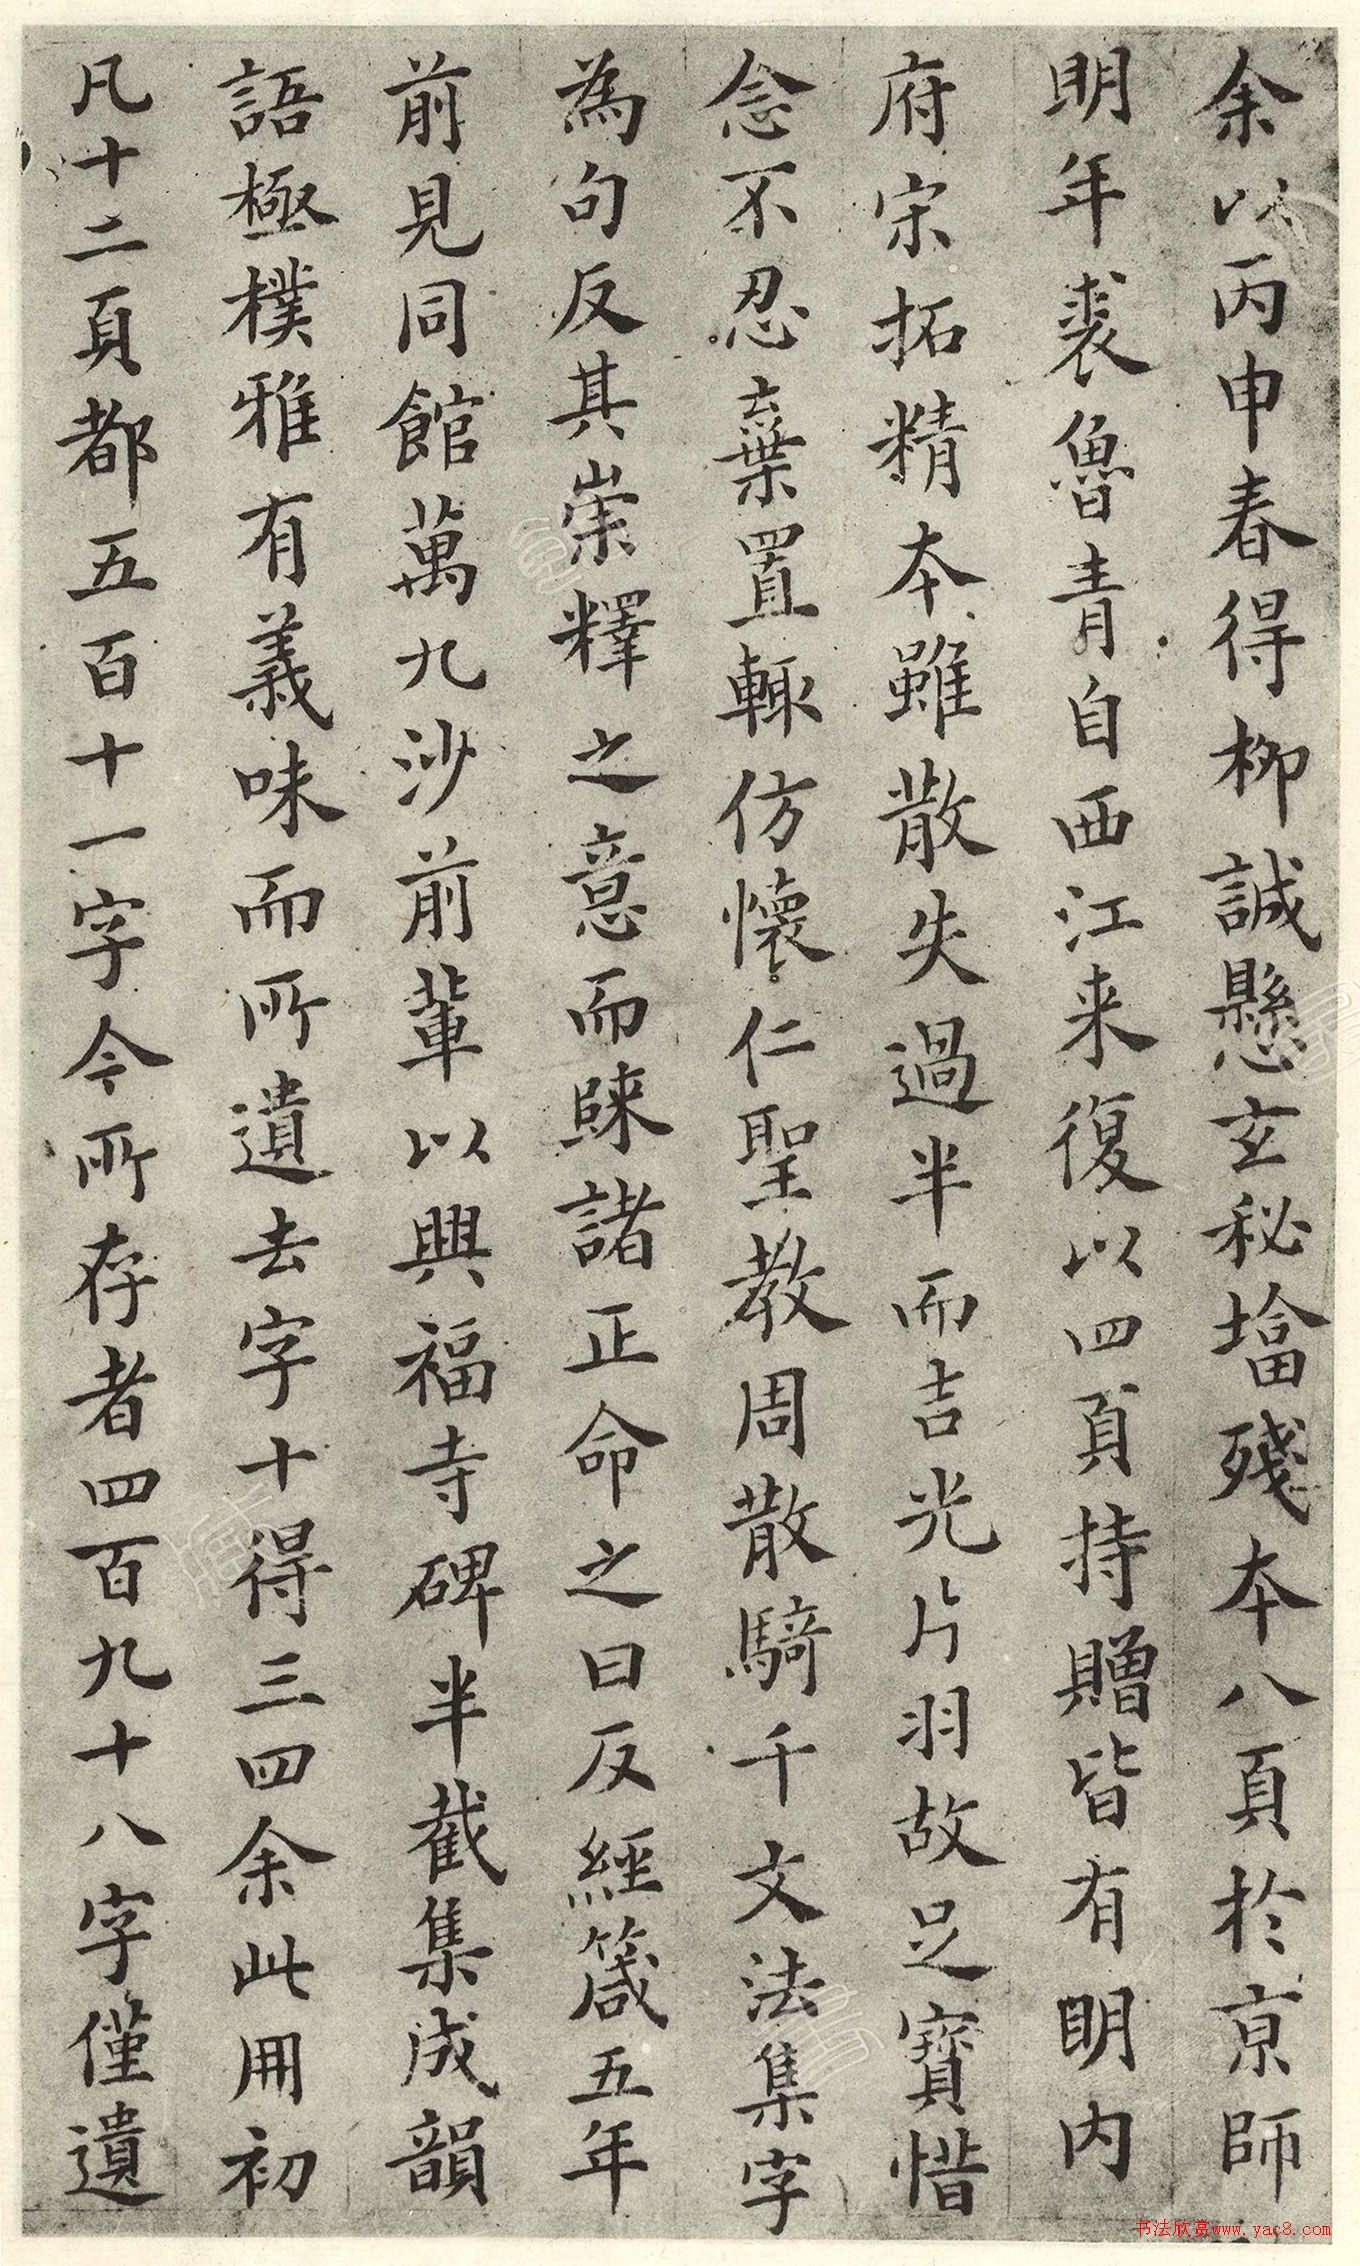 余以丙申春得柳誠懸玄秘㙮殘本八頁於京師
明年裘魯青自西江来復以四頁持贈皆有明内
府宋拓精本雖散失過半而吉光片羽故足寳惜
念不忍棄置輙仿懷仁聖教周散騎千文法集字
為句反其崇釋之意而賕諸正命之曰反經箴五年
前見同館萬九沙前輩以興福寺碑半截集成韻
語極樸雅有義味而所遺去字十得三四余此用初
凡十二頁都五百十一字今所存者四百九十八字僅遺
书法欣赏www.yac8.com